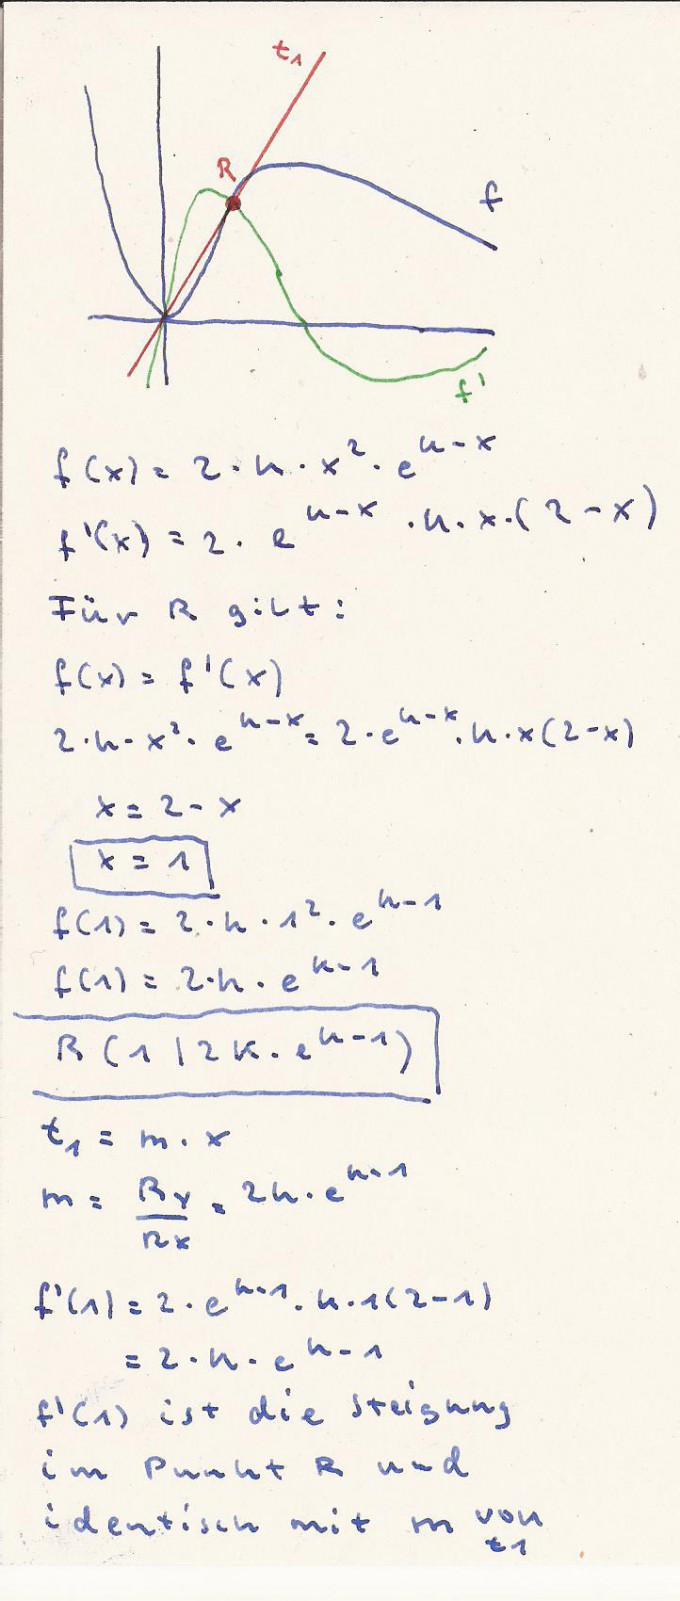 t₁
R
f
f'
f(x) = 2·k·x²·e^(k-x)
f'(x) = 2·e^(k-x)·k·x·(2-x)
Für R gilt:
f(x) = f'(x)
2·k·x²·e^(k-x) = 2·e^(k-x)·k·x(2-x)
x = 2-x
x = 1
f(1) = 2·k·1²·e^(k-1)
f(1) = 2·k·e^(k-1)
R(1|2k·e^(k-1))
t₁ = m·x
m = Ry/Rx = 2k·e^(k-1)
f'(1) = 2·e^(k-1)·k·1(2-1)
= 2·k·e^(k-1)
f'(1) ist die Steigung
im Punkt R und
identisch mit m von
t1